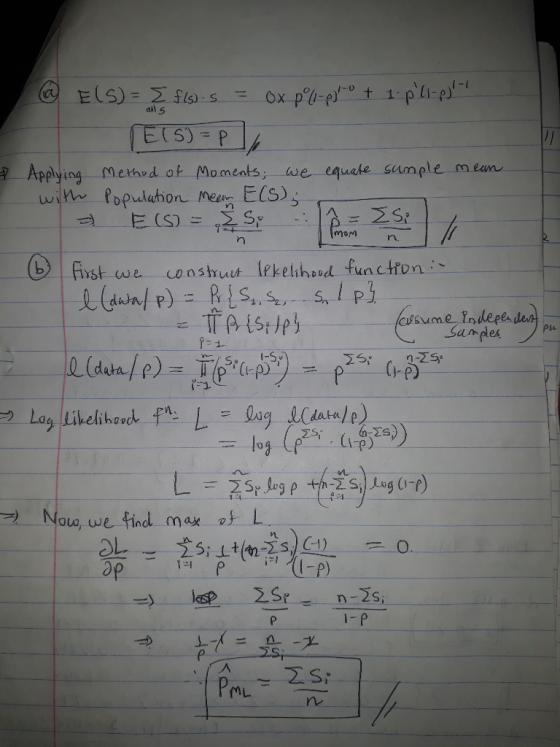 (a) E(S) = Σ_{all s} f(s)·s = 0× p⁰(1-p)^{1-0} + 1·p¹(1-p)^{1-1}
E(S) = p //
⇒ Applying Method of Moments; we equate sample mean
with Population mean E(S);
⇒ E(S) = Σ_{i=1}^{n} Sᵢ / n ∴ p̂_{mom} = ΣSᵢ / n //
(b) First we construct likelihood function :-
l(data/p) = Pr{S₁, S₂, ... Sₙ / p}
= Π_{i=1}^{n} Pr{Sᵢ/p} (assume independent samples)
l(data/p) = Π_{i=1}^{n} (p^{Sᵢ}(1-p)^{1-Sᵢ}) = p^{ΣSᵢ} (1-p)^{n-ΣSᵢ}
⇒ Log likelihood fⁿ: L = log l(data/p)
= log (p^{ΣSᵢ} · (1-p)^{(n-ΣSᵢ)})
L = Σ_{i=1}^{n} Sᵢ log p + (n-Σ_{i=1}^{n} Sᵢ) log (1-p)
⇒ Now, we find max of L.
∂L/∂p = Σ_{i=1}^{n} Sᵢ 1/p + (n-Σ_{i=1}^{n} Sᵢ) (-1)/(1-p) = 0.
⇒ ΣSᵢ / p = n-ΣSᵢ / 1-p
⇒ 1/p - 1 = n/ΣSᵢ - 1
∴ p̂_{ML} = ΣSᵢ / n //